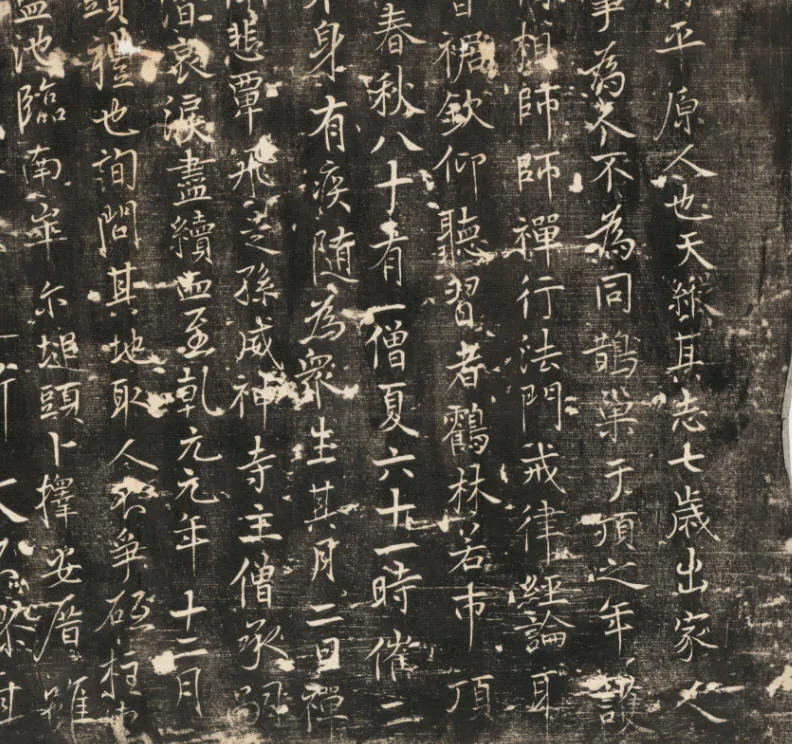 平原人也天縱其志七歲出家人
事為介不為同鵲巢于頂之年護
師師禪行法門戒律經論耳
裙欽仰聽習者鶴林若市頂
春秋八十有一僧夏六十一時催二
身有疾随為衆生其月二日禪
悲覃飛走孫威神寺主僧承嗣
哀淚盡續血至乹元元年十二月
頭禮也詢問其地取人不爭砥柱
盐池臨南峯尔塠頭卜擇安厝雖